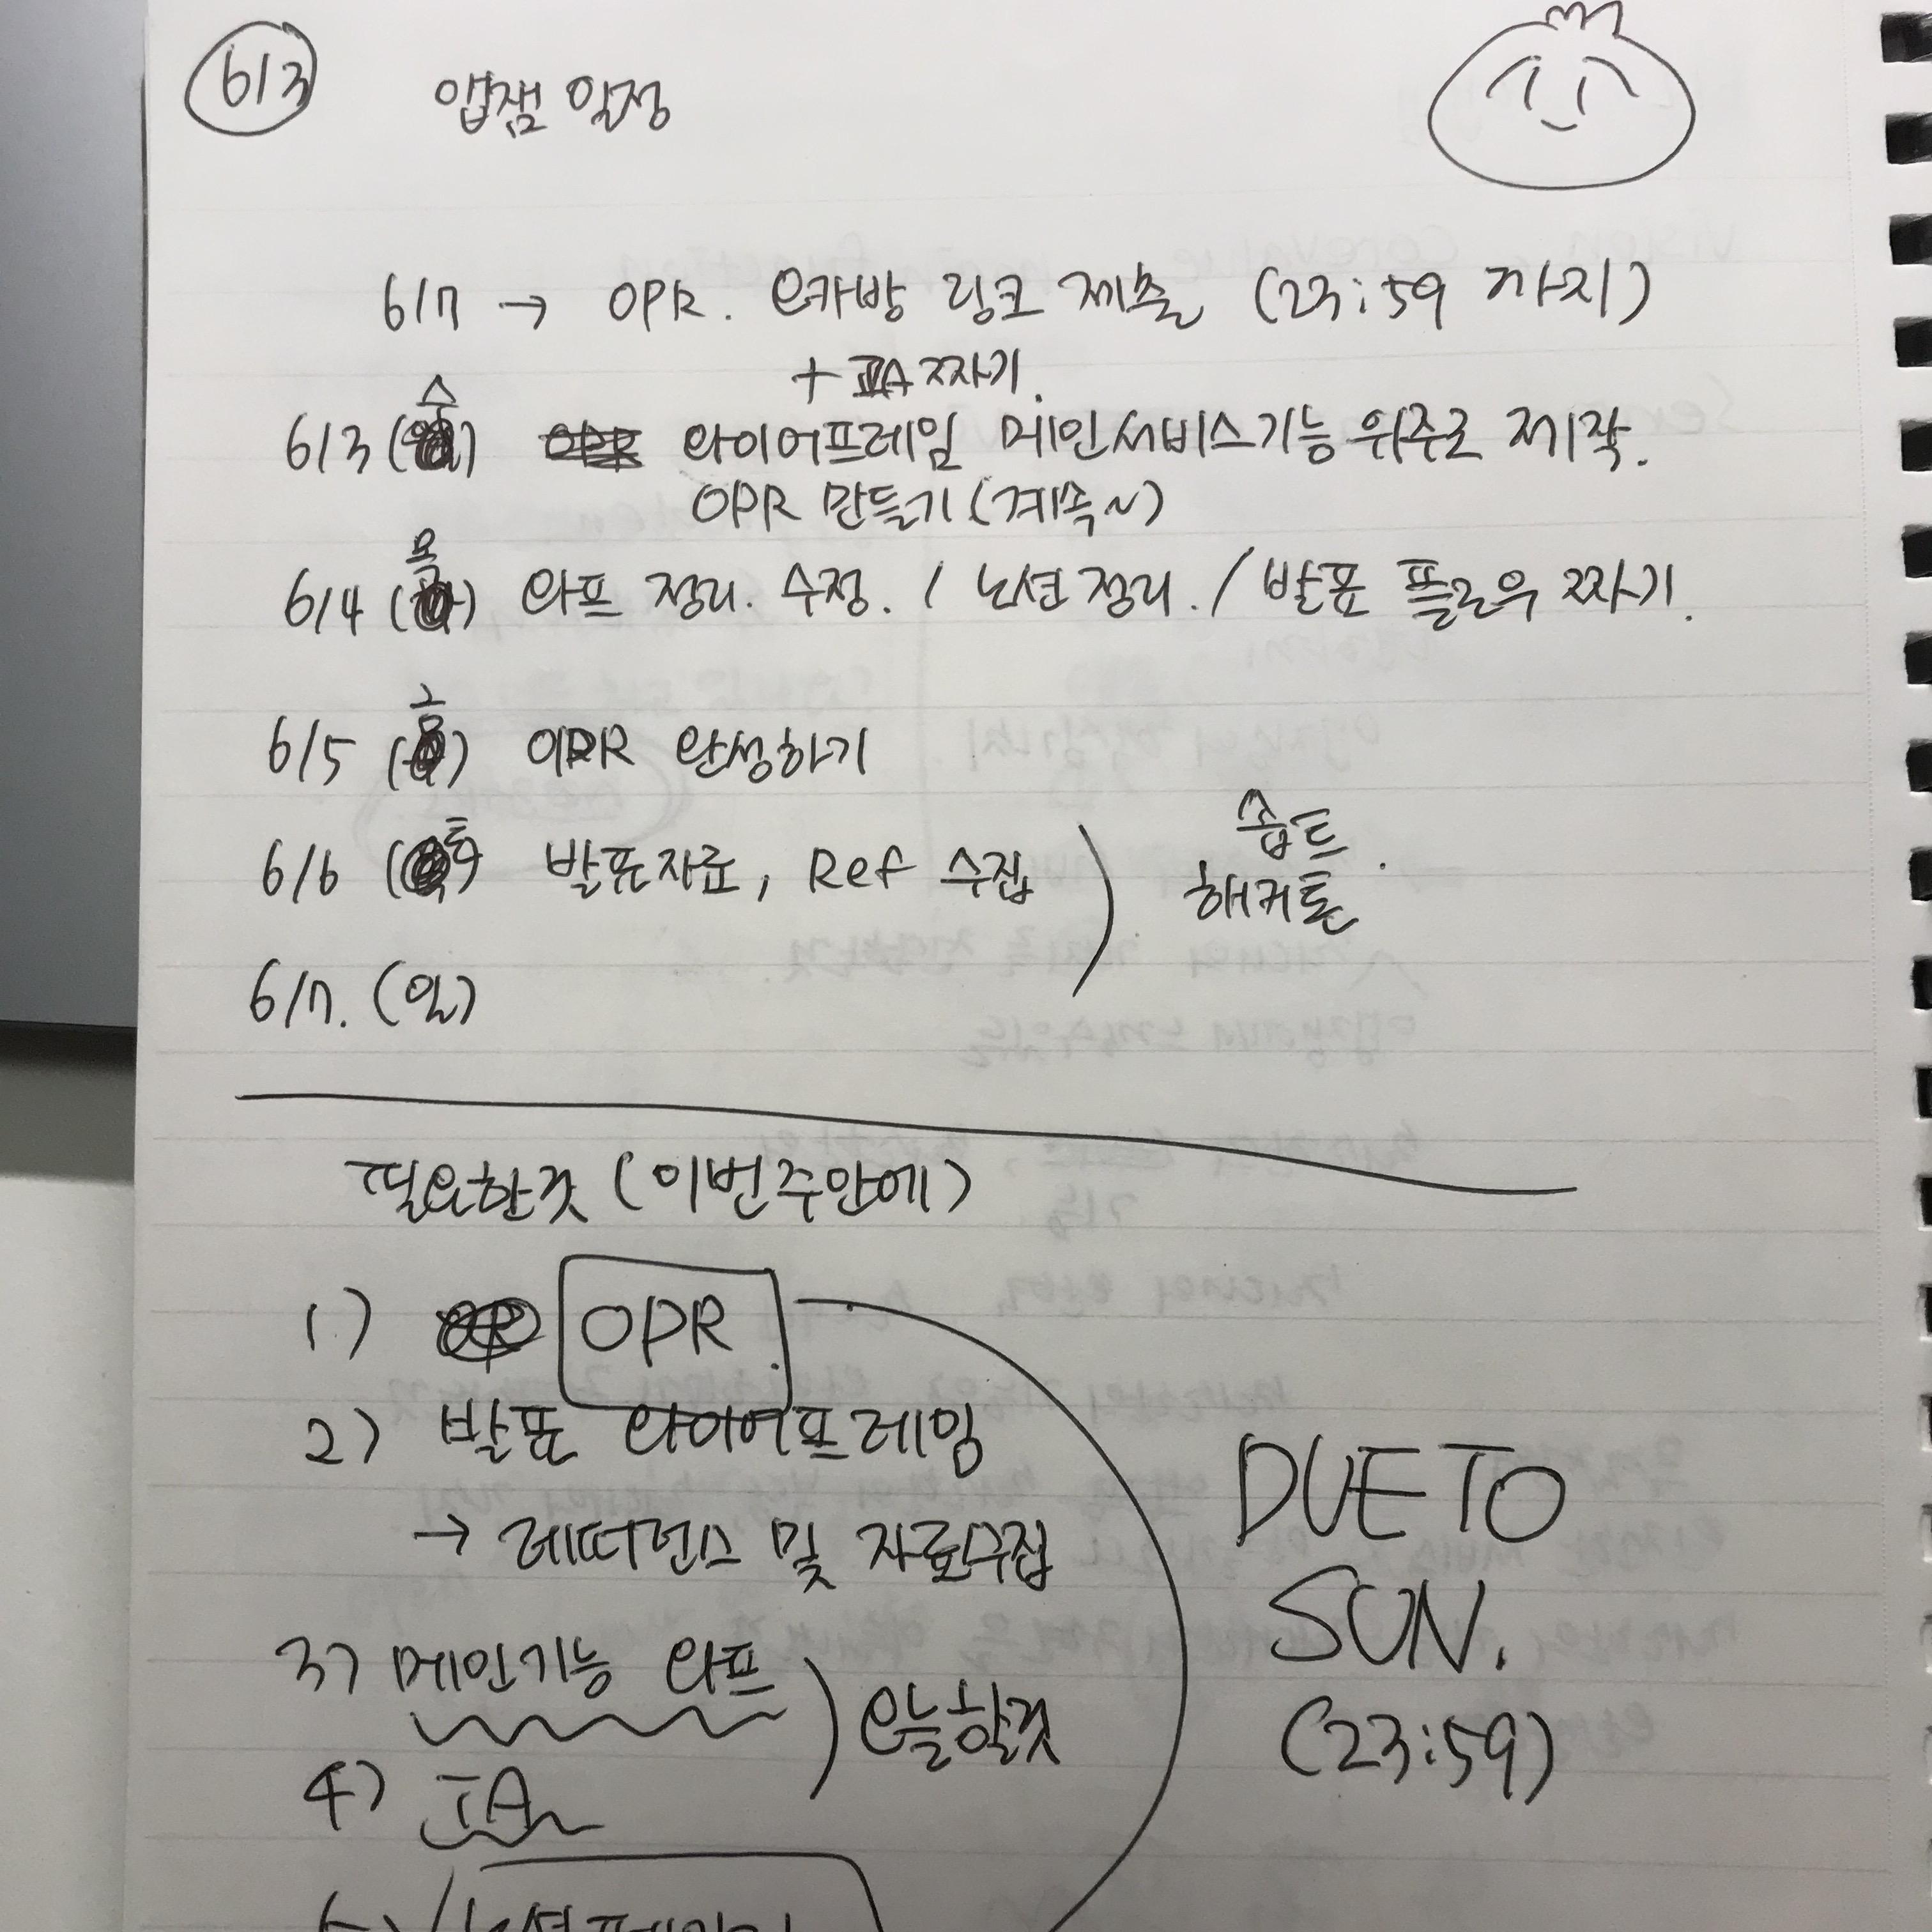 6/3
앱잼 일정
6/7 → OPR. 오카방 링크 제출 (23:59 까지)
+ IA 짜기.
6/3 (수) 와이어프레임 메인서비스기능 위주로 제작.
OPR 만들기 (계속~)
6/4 (목) 와프 정리. 수정. / 노션 정리. / 발표 플로우 짜기.
6/5 (금) OPR 완성하기
6/6 (토) 발표자료, Ref 수집
솝트
해커톤
6/7. (일)
필요한것 (이번주안에)
1) OPR.
2) 발표 와이어프레임
→ 레퍼런스 및 자료수집
3) 메인기능 와프
오늘할것
4) IA
DUE TO
SUN.
(23:59)